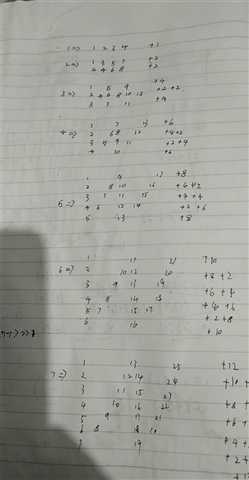 1 2 3 4 +1
2 =) 1 3 5 7 +2
2 4 6 8 +2
3 =) 1 5 9 +4
2 4 6 8 10 12 +2 +2
3 7 11 +4
4 =) 1 7 13 +6
2 6 8 12 +4 +2
3 5 9 11 +2 +4
4 10 +6
5 =) 1 9 +8
2 8 10 16 +6 +2
3 7 11 15 +4 +4
4 6 12 14 +2 +6
5 13 +8
6 =) 1 11 21 +10
2 10 12 20 +8 +2
3 9 13 19 +6 +4
4 8 14 18 +4 +6
5 7 15 17 +2 +8
6 16 +10
7 =) 1 13 25 +12
2 12 14 24 +10 +
3 11 15 23 +8 +
4 10 16 22 +6 +
5 9 17 21 +4 +
6 8 18 +2 +
7 19